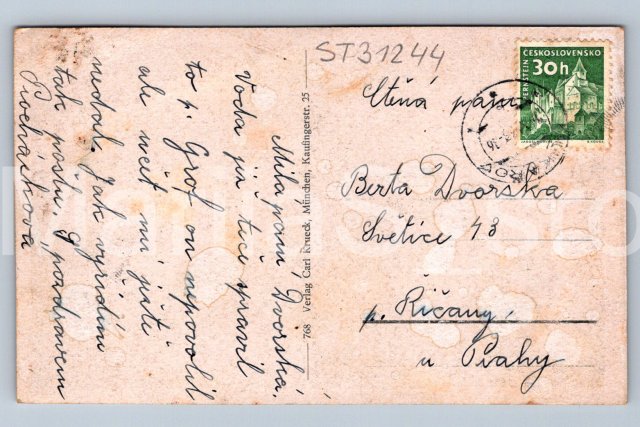 ST31244
ČESKOSLOVENSKO
30h
Ctěná paní
Berta Dvorska
Světice 13
p. Říčany
u Prahy
768 Verlag Carl Krueck, München, Kaufingerstr. 25
Milá paní, Dvorská.
Voda již teče spravil
to p. Grof on nepovolil
ale účet mi ještě
nedal. Jak vyřídím
tak pošlu. S pozdravem
Procházkova